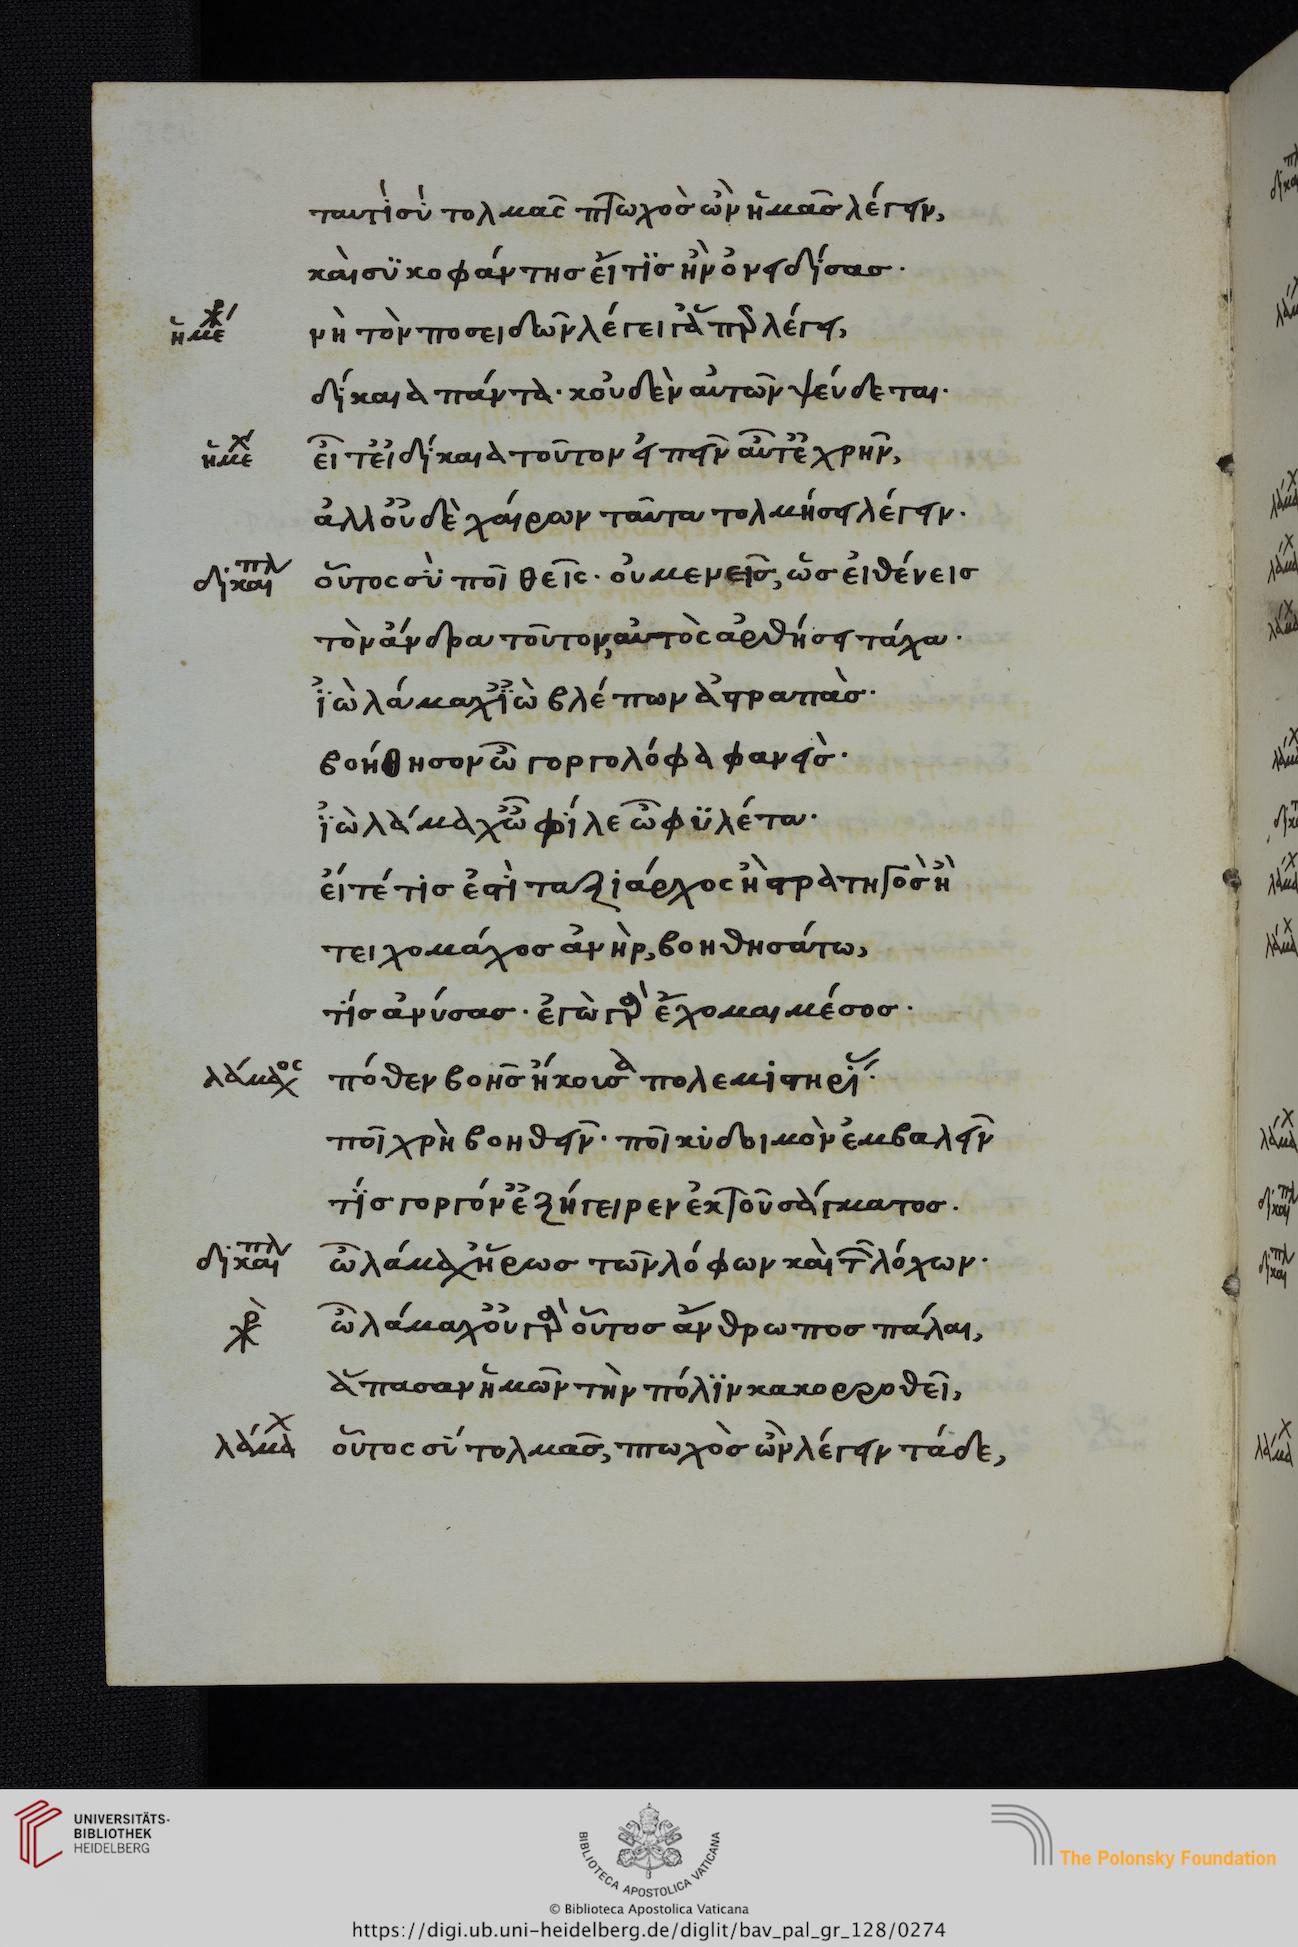 ταυτὶ σὺ τολμᾶς πτωχὸς ὢν ἡμᾶς λέγειν,
καὶ συκοφάντης εἴ τις ἦν ὠνείδισας.
ἡμε χρ νὴ τὸν ποσειδῶ λέγει γ' ἅπερ λέγει,
δίκαια πάντα· κοὐδὲν αὐτῶν ψεύδεται.
ἡμε χ εἶτ' εἰ δίκαια τοῦτον εἰπεῖν αὔτ' ἐχρῆν,
ἀλλ' οὐδὲ χαίρων ταῦτα τολμήσει λέγειν.
δικαι πλ οὗτος σὺ ποῖ θεῖς· οὐ μενεῖς, ὡς εἰ θένεις
τὸν ἄνδρα τοῦτον, αὐτὸς ἀρθήσει τάχα.
ἰὼ λάμαχ' ἰὼ βλέπων ἀστραπὰς.
βοήθησον ὦ γοργολόφα φανεὶς.
ἰὼ λάμαχ' ὦ φίλε ὦ φυλέτα.
εἴτέ τις ἐστὶ ταξίαρχος ἢ στρατηγὸς ἢ
τειχομάχος ἀνὴρ, βοηθησάτω,
τίς ἀνύσας· ἐγὼ γὰρ ἔχομαι μέσος.
λάμαχος πόθεν βοῆς ἤκουσα πολεμιστηρί·
ποῖ χρὴ βοηθεῖν· ποῖ κυδοιμὸν ἐμβαλεῖν
τίς γοργόν' ἐξήγειρεν ἐκ τοῦ σάγματος.
δικαι πλ ὦ λάμαχ' ἥρως τῶν λόφων καὶ τῶν λόχων.
χρ ὦ λάμαχ' οὐ γὰρ οὗτος ἄνθρωπος πάλαι,
ἅπασαν ἡμῶν τὴν πόλιν κακορροθεῖ,
λάμα χ οὗτος σύ τολμᾶς, πτωχὸς ὢν λέγειν τάδε,
UNIVERSITÄTS-
BIBLIOTHEK
HEIDELBERG
BIBLIOTECA APOSTOLICA VATICANA
The Polonsky Foundation
© Biblioteca Apostolica Vaticana
https://digi.ub.uni-heidelberg.de/diglit/bav_pal_gr_128/0274